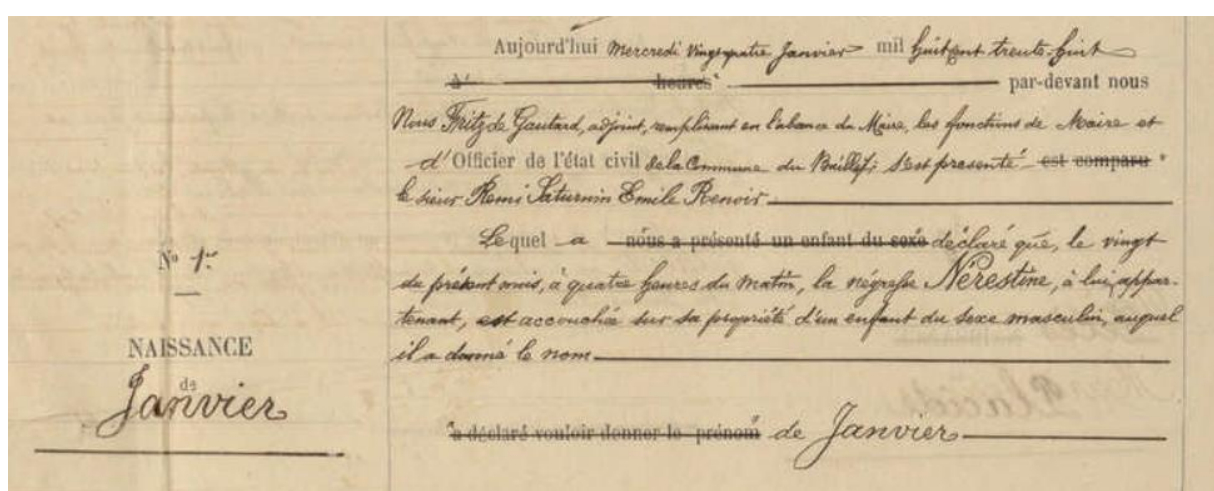 Aujourd'hui mercredi vingt quatre Janvier mil huit cent trente-huit
à heures par-devant nous
Nous Fritz de Gautard, adjoint, remplissant en l'absence du Maire, les fonctions de Maire et
d'Officier de l'état civil de la Commune du Baillif; s'est présenté est comparu
le sieur Remi Saturnin Emile Renoir
Lequel a nous a présenté un enfant du sexe déclaré que, le vingt
du présent mois, à quatre heures du matin, la négresse Nérestine, à lui appar-
tenant, est accouchée sur sa propriété d'un enfant du sexe masculin, auquel
il a donné le nom
a déclaré vouloir donner le prénom de Janvier
No 1er
NAISSANCE
de
Janvier